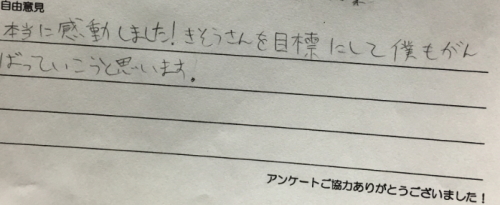 自由意見
本当に感動しました!きそうさんを目標にして僕もがん
ばっていこうと思います。
アンケートご協力ありがとうございました!